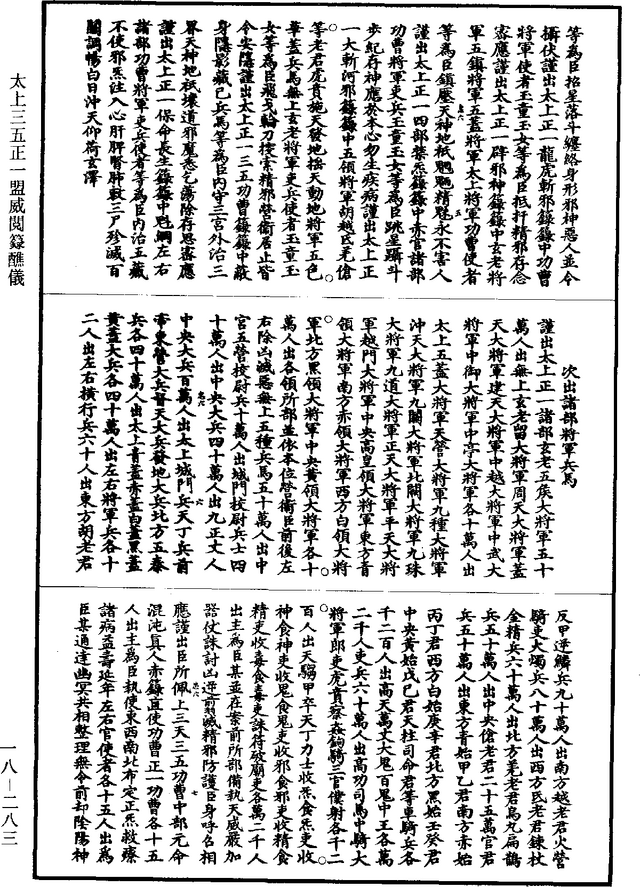 等為臣招星落斗纏絡身形邪神惡人並令
攝伏謹出太上正一龍虎斬邪籙籙中功曹
將軍使者玉童玉女等為臣抵扞精邪存念
審應謹出太上正一辟邪神籙籙中玄老將
軍五鎮將軍五蓋將軍太上將軍功曹使者
等為臣鎮壓天神地祇魍魎精魅永不害人
謹出太上正一四部禁炁籙籙中赤官諸部
功曹將軍吏兵玉童玉女等為臣跳星躡斗
步紀存神應於本心勿生疾病謹出太上正
一大斬河邪籙籙中五領將軍胡越氐羌傖
等老君虎賁施天發地搖天動地將軍五色
華蓋兵馬無上玄老將軍吏兵使者玉童玉
女等為臣飛戈輪刀按害精邪營衛居止皆
令安隱謹出太上正一三五功曹籙籙中蔽
身隱影藏已兵馬等為臣內守三宮外治三
界天神地祇壞道邪魔悉乞蕩除存思審應
謹出太上正一保命長生籙籙中魁罡左右
諸部功曹將軍吏兵使者等為臣內治五藏
不使邪炁注入心肝脾腎肺數三尸殄滅百
關調暢白日沖天仰荷玄澤
次出諸部將軍兵馬
謹出太上正一諸部玄老五侯大將軍五十
萬人出無上玄老留大將軍周天大將軍蓋
天大將軍建天大將軍中越大將軍中武大
將軍中御大將軍中亭大將軍各十萬人出
太上五蓋大將軍天營大將軍九種大將軍
沖天大將軍九關大將軍北關大將軍九珠
大將軍九道大將軍正天大將軍平天大將
軍越門大將軍中央高皇領大將軍東方青
領大將軍南方赤領大將軍西方白領大將
軍北方黑領大將軍中央黃領大將軍各十
萬人出各領所部並依本位營衛臣前後左
右除凶滅惡無上五種兵馬五十萬人出中
宮五營校尉兵十萬人出城門校尉兵士四
十萬人出中央大兵四十萬人出九正丈人
中央大兵百萬人出太上城門兵天丁兵前
帝東營大兵督天大兵發地大兵北方五泰
兵各四十萬人出太上青蓋赤蓋白蓋黑蓋
黃蓋大兵各四十萬人出左右將軍兵各十
二人出左右橫行兵六十人出東方胡老君
反甲逆鱗兵九十萬人出南方越老君火營
騎吏大燭兵八十萬人出西方氐老君鍊杖
金精兵六十萬人出北方羌老君烏丸扁鵲
兵五十萬人出中央傖老君二十五萬官君
兵五十萬人出東方青始甲乙君南方赤始
丙丁君西方白始庚辛君北方黑始壬癸君
中央黃始戊己君天柱司命君等車騎兵各
千二百人出高天萬丈大鬼百鬼中王各萬
二千人吏兵六十萬人出高功司馬中騎大
將軍郎吏虎賁察姦鉤騎三官僕射各千二
百人出天騶甲卒天丁力士收炁食炁吏收
神食神吏收鬼食鬼吏收邪食邪吏收精食
精吏收毒食毒吏誅符破廟吏各萬二千人
出主為臣某並在案前所部備執天威嚴加
器仗誅討凶逆前滅精邪防護臣身呼召相
應謹出臣所佩上三天三五功曹中部元命
混沌真人赤籙直使功曹正一功曹各十五
人出主為臣執使東西南北布定正炁救療
諸病益壽延年左右官使者各十五人出為
臣某通達幽冥共相整理無令前却陰陽神
太上三五正一盟威閱籙醮儀
一八—二八三